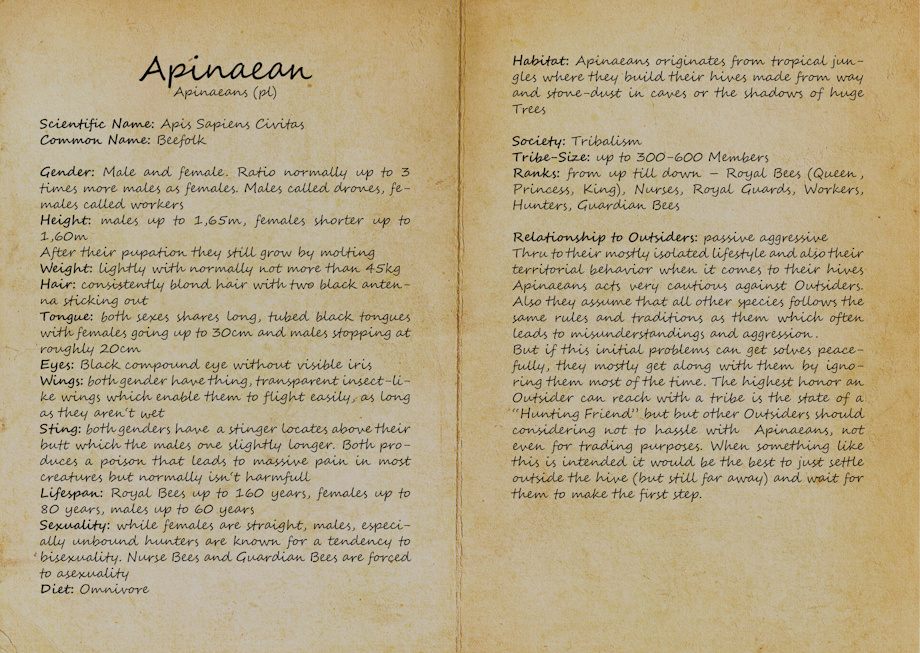 Apinaean
Apinaeans (pl)
Scientific Name: Apis Sapiens Civitas
Common Name: Beefolk
Gender: Male and female. Ratio normally up to 3
times more males as females. Males called drones, fe-
males called workers
Height: males up to 1,65m, females shorter up to
1,60m
After their pupation they still grow by molting
Weight: lightly with normally not more than 45kg
Hair: consistently blond hair with two black anten-
na sticking out
Tongue: both sexes shares long, tubed black tongues
with females going up to 30cm and males stopping at
roughly 20cm
Eyes: Black compound eye without visible iris
Wings: both gender have thing, transparent insect-li-
ke wings which enable them to flight easily, as long
as they aren't wet
Sting: both genders have a stinger locates above their
butt which the males one slightly longer. Both pro-
duces a poison that leads to massive pain in most
creatures but normally isn't harmfull
Lifespan: Royal Bees up to 160 years, females up to
80 years, males up to 60 years
Sexuality: while females are straight, males, especi-
ally unbound hunters are known for a tendency to
bisexuality. Nurse Bees and Guardian Bees are forced
to asexuality
Diet: Omnivore
Habitat: Apinaeans originates from tropical jun-
gles where they build their hives made from way
and stone-dust in caves or the shadows of huge
Trees
Society: Tribalism
Tribe-Size: up to 300-600 Members
Ranks: from up till down – Royal Bees (Queen,
Princess, King), Nurses, Royal Guards, Workers,
Hunters, Guardian Bees
Relationship to Outsiders: passive aggressive
Thru to their mostly isolated lifestyle and also their
territorial behavior when it comes to their hives
Apinaeans acts very cautious against Outsiders.
Also they assume that all other species follows the
same rules and traditions as them which often
leads to misunderstandings and aggression.
But if this initial problems can get solves peace-
fully, they mostly get along with them by igno-
ring them most of the time. The highest honor an
Outsider can reach with a tribe is the state of a
“Hunting Friend” but but other Outsiders should
considering not to hassle with Apinaeans, not
even for trading purposes. When something like
this is intended it would be the best to just settle
outside the hive (but still far away) and wait for
them to make the first step.